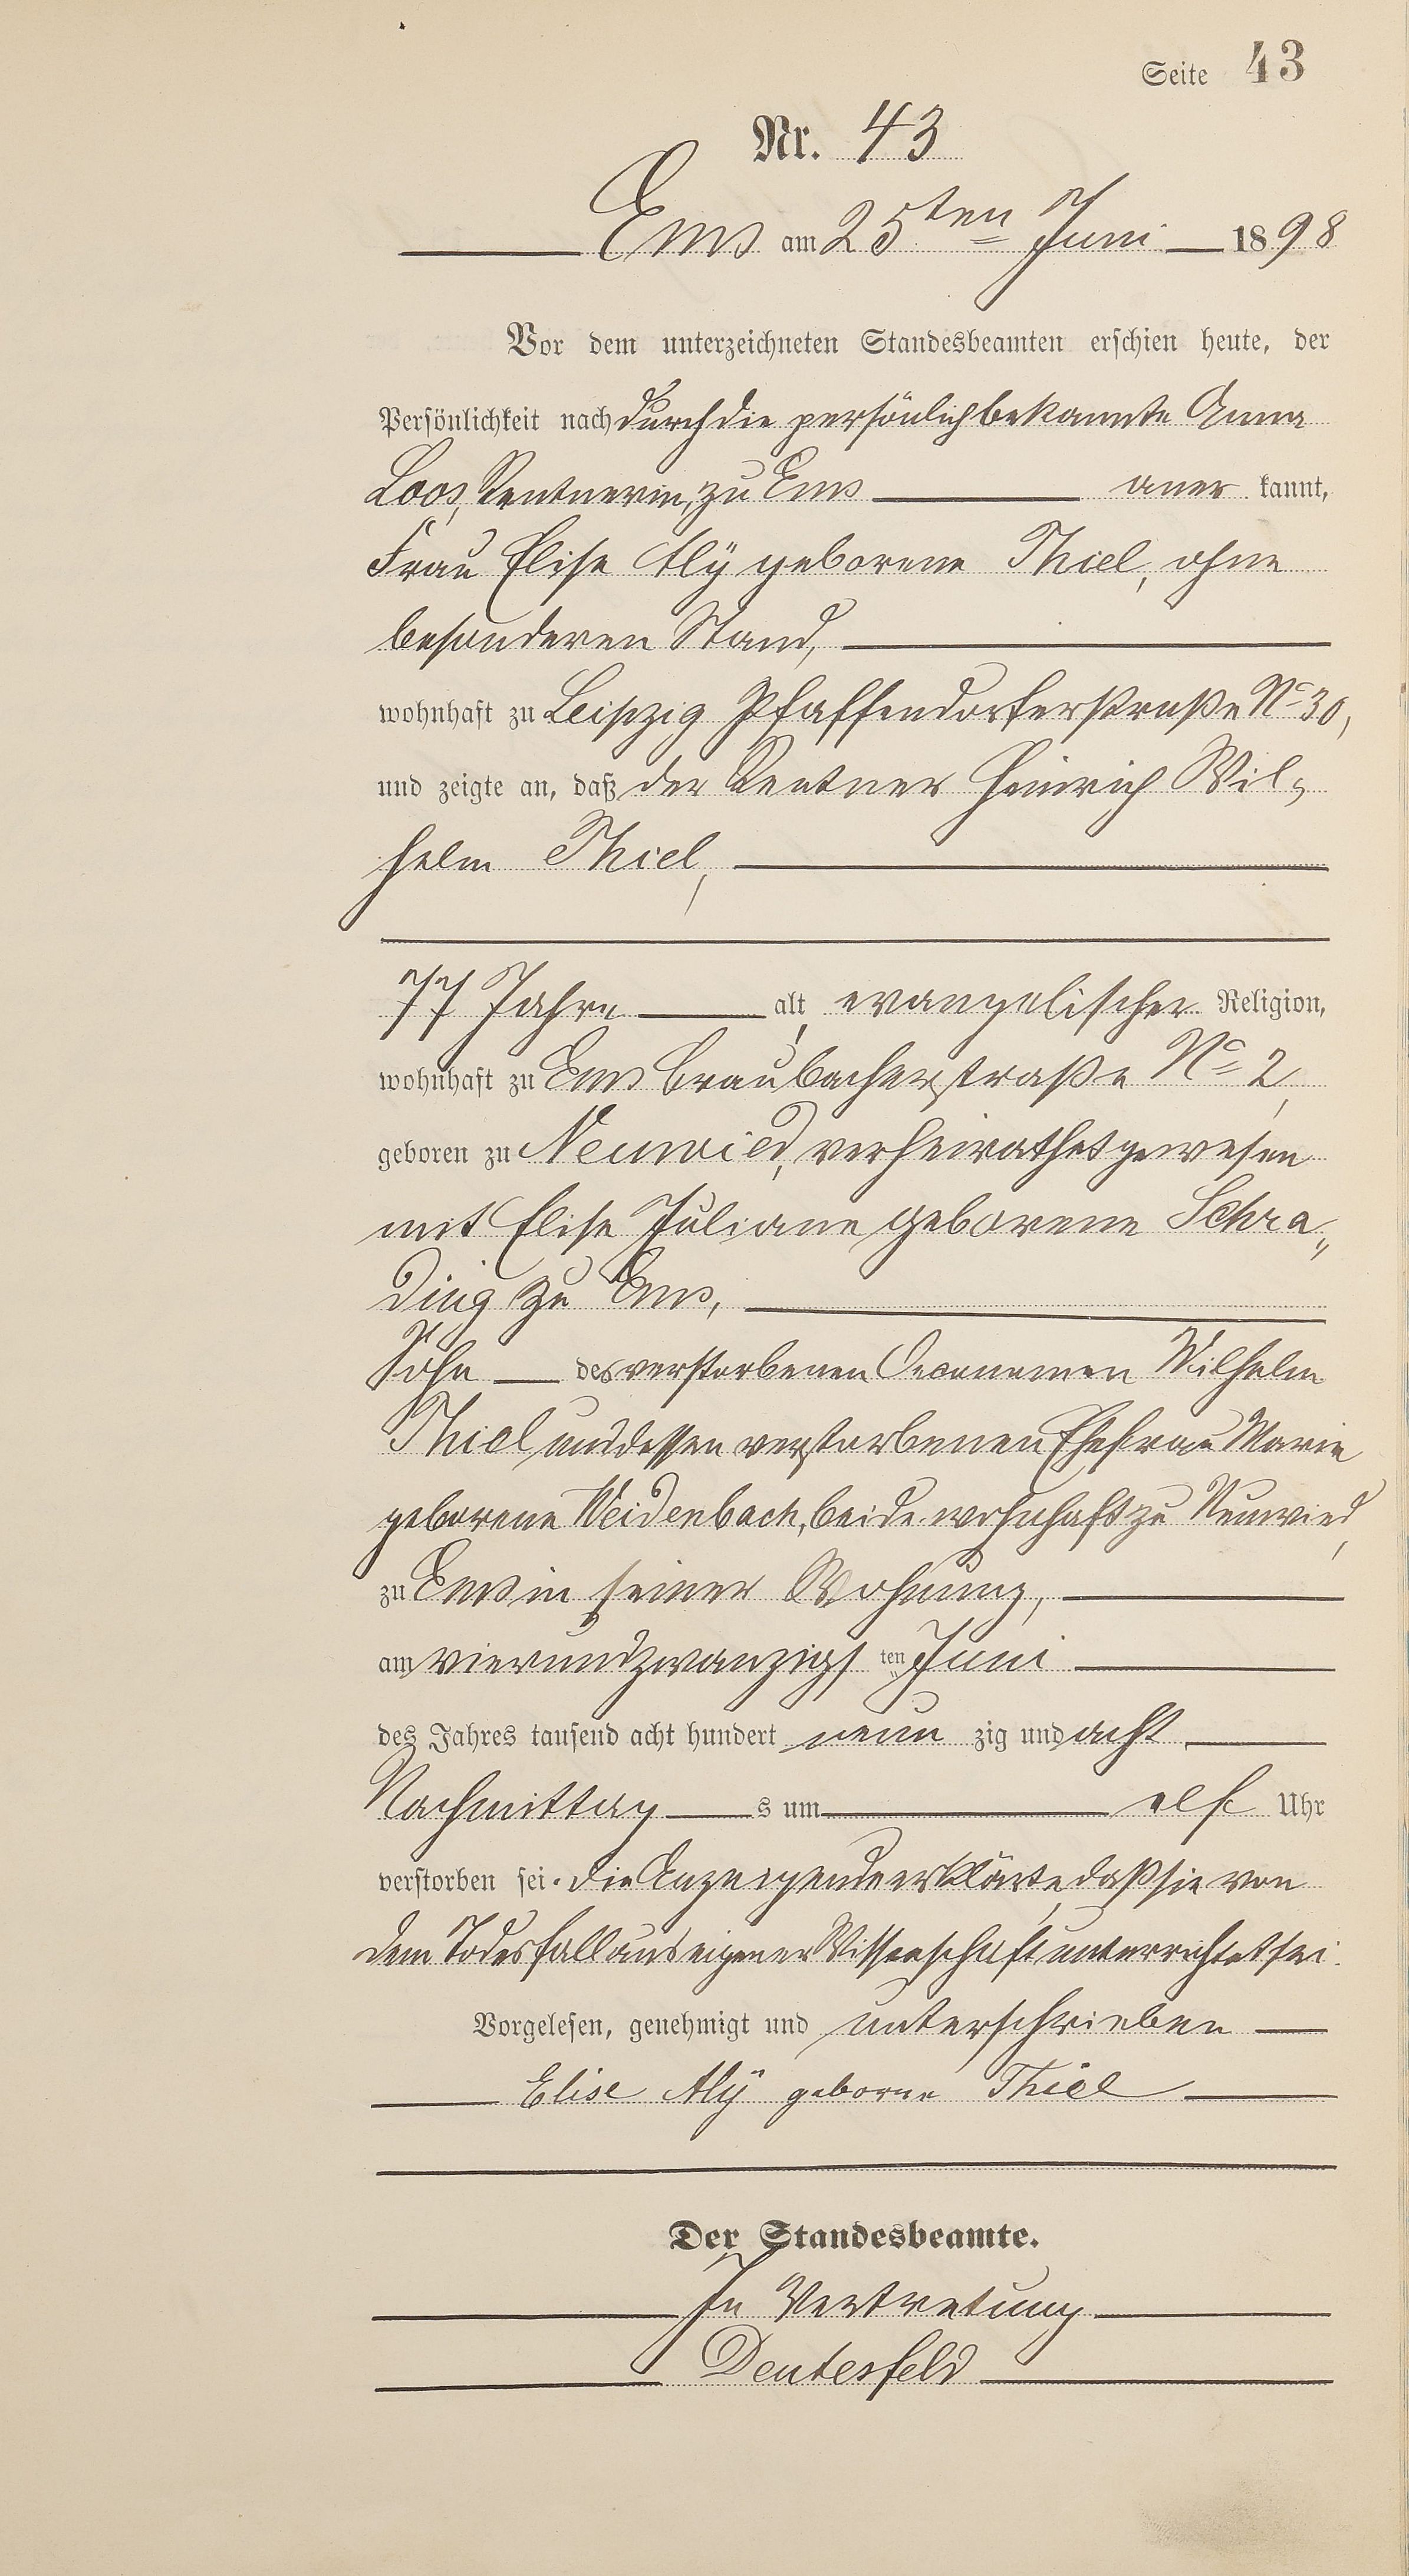 Seite 43
Nr. 43
Ems am 25ten Juni 1898
Vor dem unterzeichneten Standesbeamten erschien heute, der
Persönlichkeit nach durch die persönlich bekannte Anna
Loos, Rentnerin, zu Ems aner kannt,
Frau Elise Alÿ geborene Thiel, ohne
besonderen Stand,
wohnhaft zu Leipzig Pfaffendorferstraße No 30,
und zeigte an, daß der Rentner Heinrich Wil-
helm Thiel,
77 Jahre alt, evangelischer Religion,
wohnhaft zu Ems Braubacherstraße No 2,
geboren zu Neuwied, verheirathet gewesen
mit Elise Juliane geborene Schra-
ding zu Ems,
Sohn des verstorbenen Oeconomen Wilhelm
Thiel und dessen verstorbenen Ehefrau Marie
geborene Weidenbach, beide wohnhaft zu Neuwied,
zu Ems in seiner Wohnung,
am vierundzwanzigs ten Juni
des Jahres tausend acht hundert neun zig und acht
Nachmittag s um elf Uhr
verstorben sei. Die Anzeigende erklärte, daß sie von
dem Todesfall aus eigener Wissenschaft unterrichtet sei.
Vorgelesen, genehmigt und unterschrieben
Elise Alÿ geborne Thiel
Der Standesbeamte.
In Vertretung
Deutesfeld